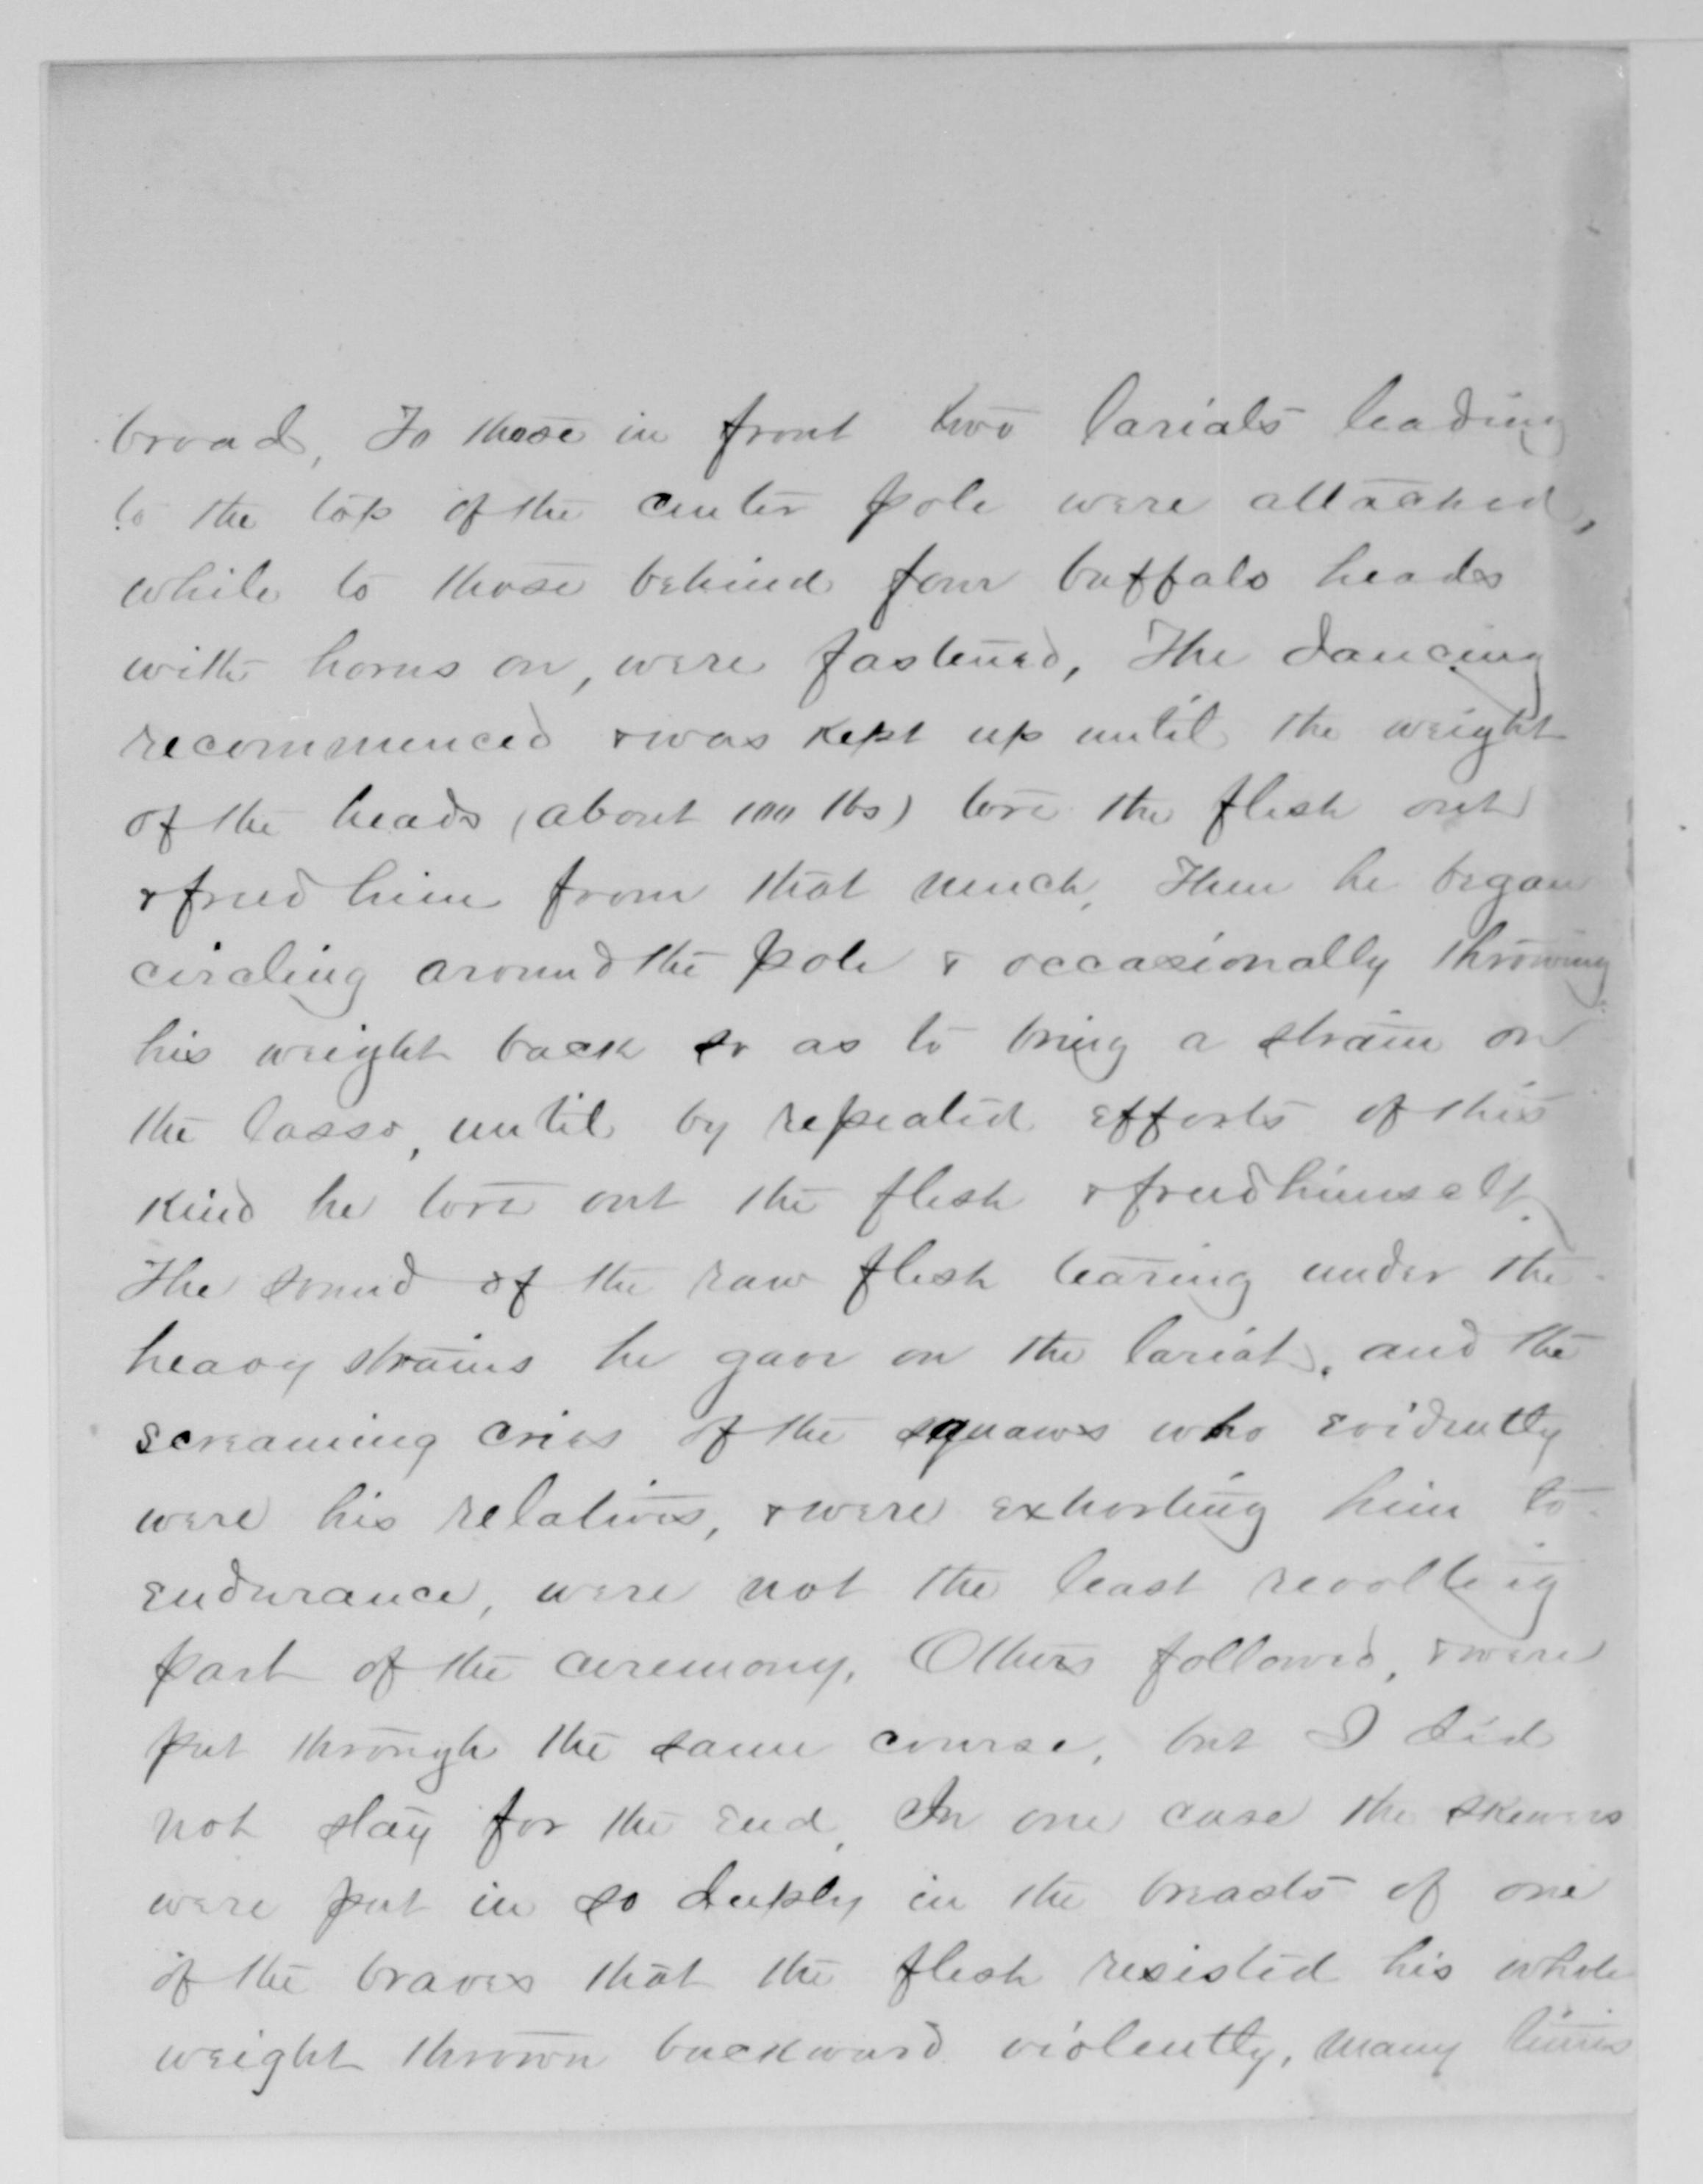 broad, To those in front two lariats leading
to the top of the center pole were attached,
while to those behind four buffalo heads
with horns on, were fastened, The dancing
recommenced & was kept up until the weight
of the heads (about 100 lbs) tore the flesh out
& freed him from that much, Then he began
circling around the pole & occasionally throwing
his weight back so as to bring a strain on
the lasso, until by repeated efforts of this
kind he tore out the flesh & freed himself.
The sound of the raw flesh tearing under the
heavy strains he gave on the lariat, and the
screaming cries of the squaws who evidently
were his relatives, & were exhorting him to
endurance, were not the least revolting
part of the ceremony. Others followed, & were
put through the same course, but I did
not stay for the end, In one case the skewers
were put in so deeply in the breasts of one
of the braves that the flesh resisted his whole
weight thrown backward violently, many times